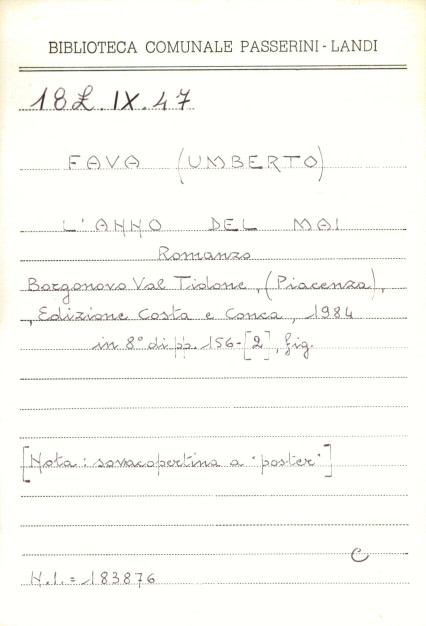 BIBLIOTECA COMUNALE PASSERINI-LANDI
18£.IX.47
FAVA (UMBERTO)
L'ANNO DEL MAI
Romanzo
Borgonovo Val Tidone, (Piacenza),
, Edizione Costa e Conca, 1984
in 8° di pp. 156-[2], fig.
[Nota: sovacopertina a "poster"]
C
N.I. = 183876